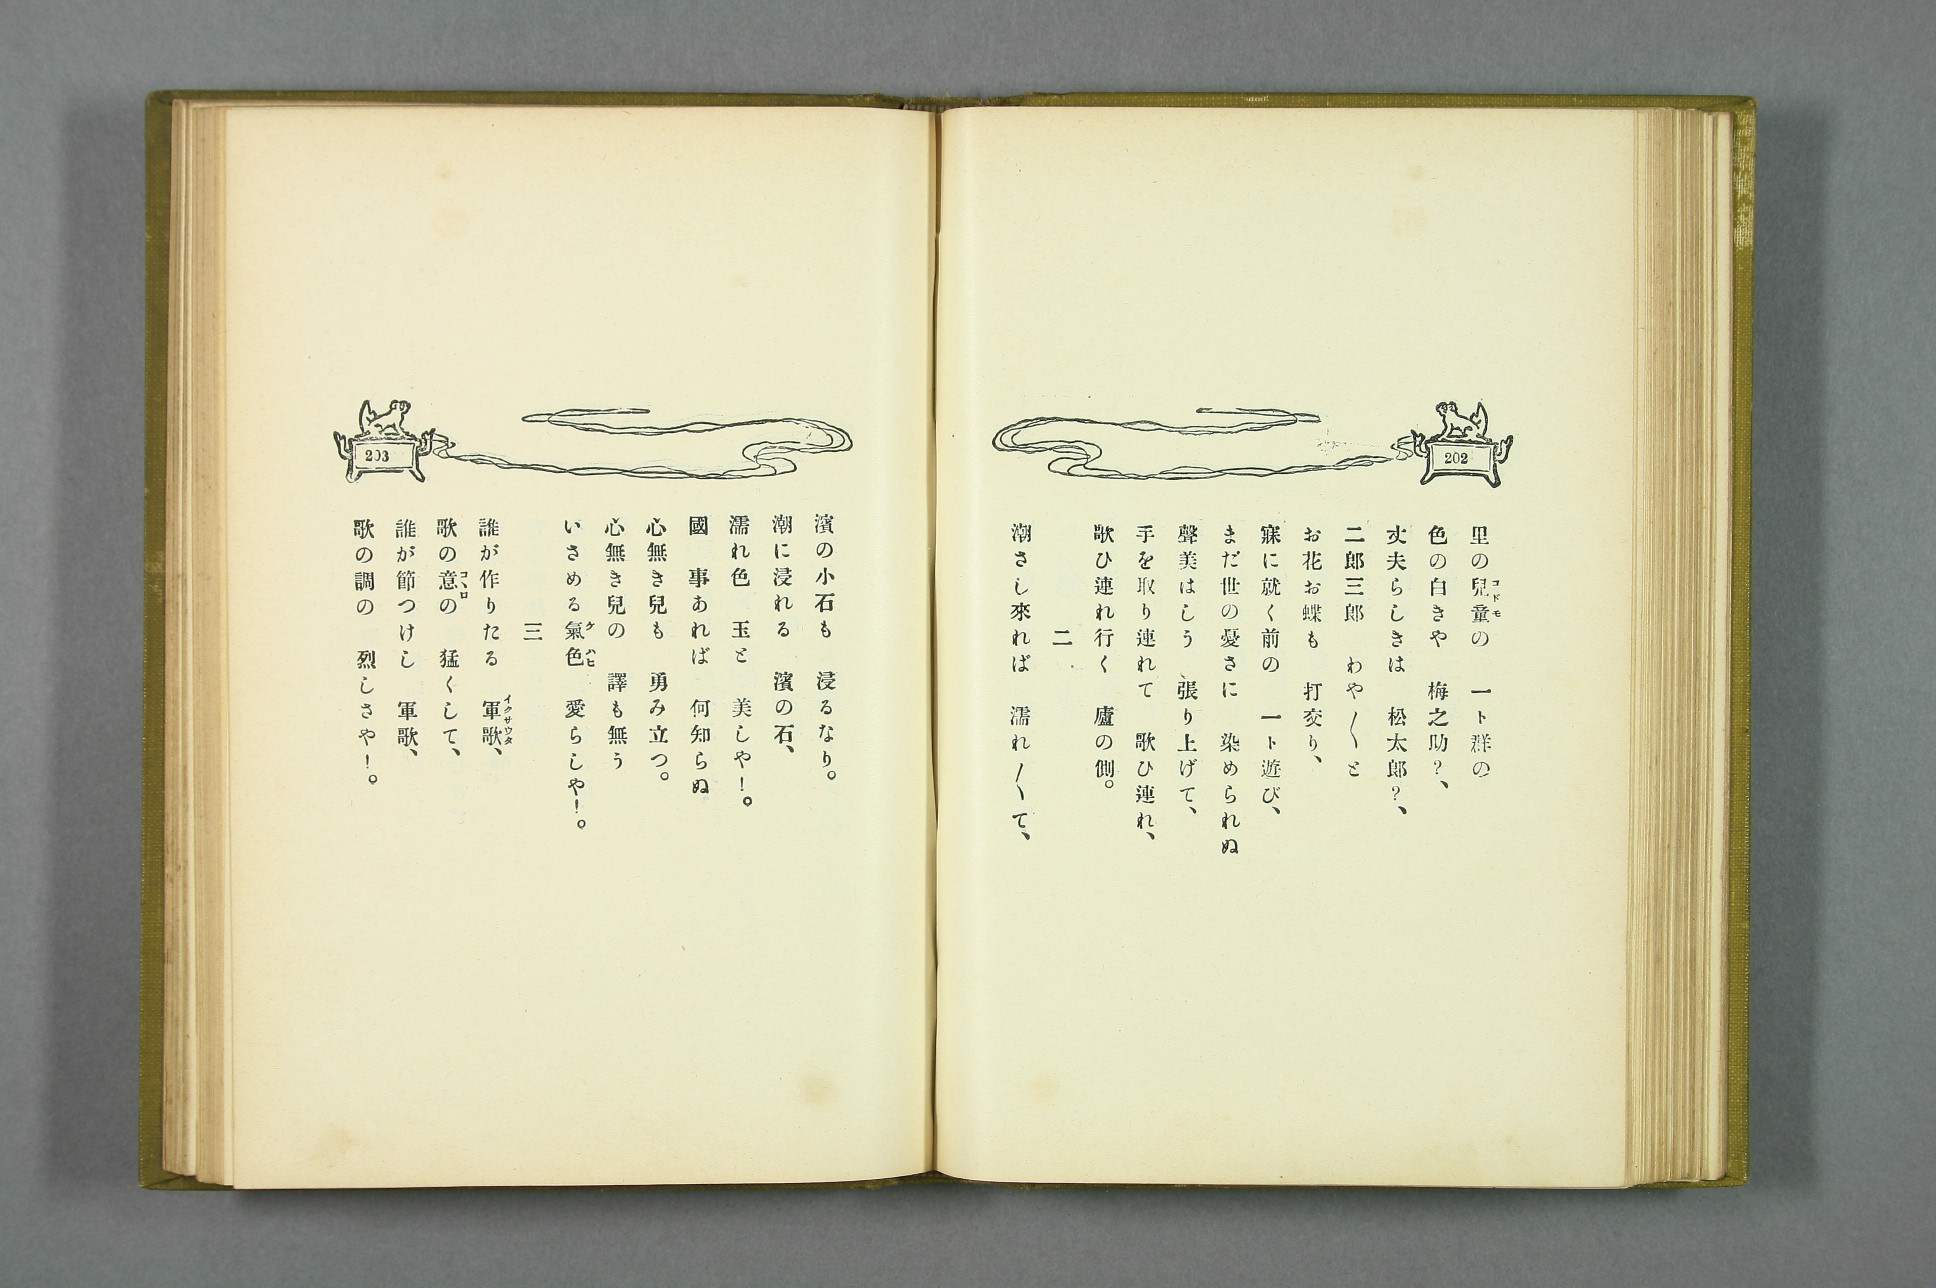 202
里の兒童の　一ト群の
コドモ
色の白きや　梅之助？、
丈夫らしきは　松太郎？、
二郎三郎　わや〳〵と
お花お蝶も　打交り、
寐に就く前の　一ト遊び、
まだ世の憂さに　染められぬ
聲美はしう　張り上げて、
手を取り連れて　歌ひ連れ、
歌ひ連れ行く　廬の側。
二
潮さし來れば　濡れ〳〵て、
203
濱の小石も　浸るなり。
潮に浸れる　濱の石、
濡れ色　玉と　美しや！。
國　事あれば　何知らぬ
心無き兒も　勇み立つ。
心無き兒の　譯も無う
いさめる氣色　愛らしや！。
ケハヒ
三
誰が作りたる　軍歌、
イクサウタ
歌の意の　猛くして、
コヽロ
誰が節つけし　軍歌、
歌の調の　烈しさや！。